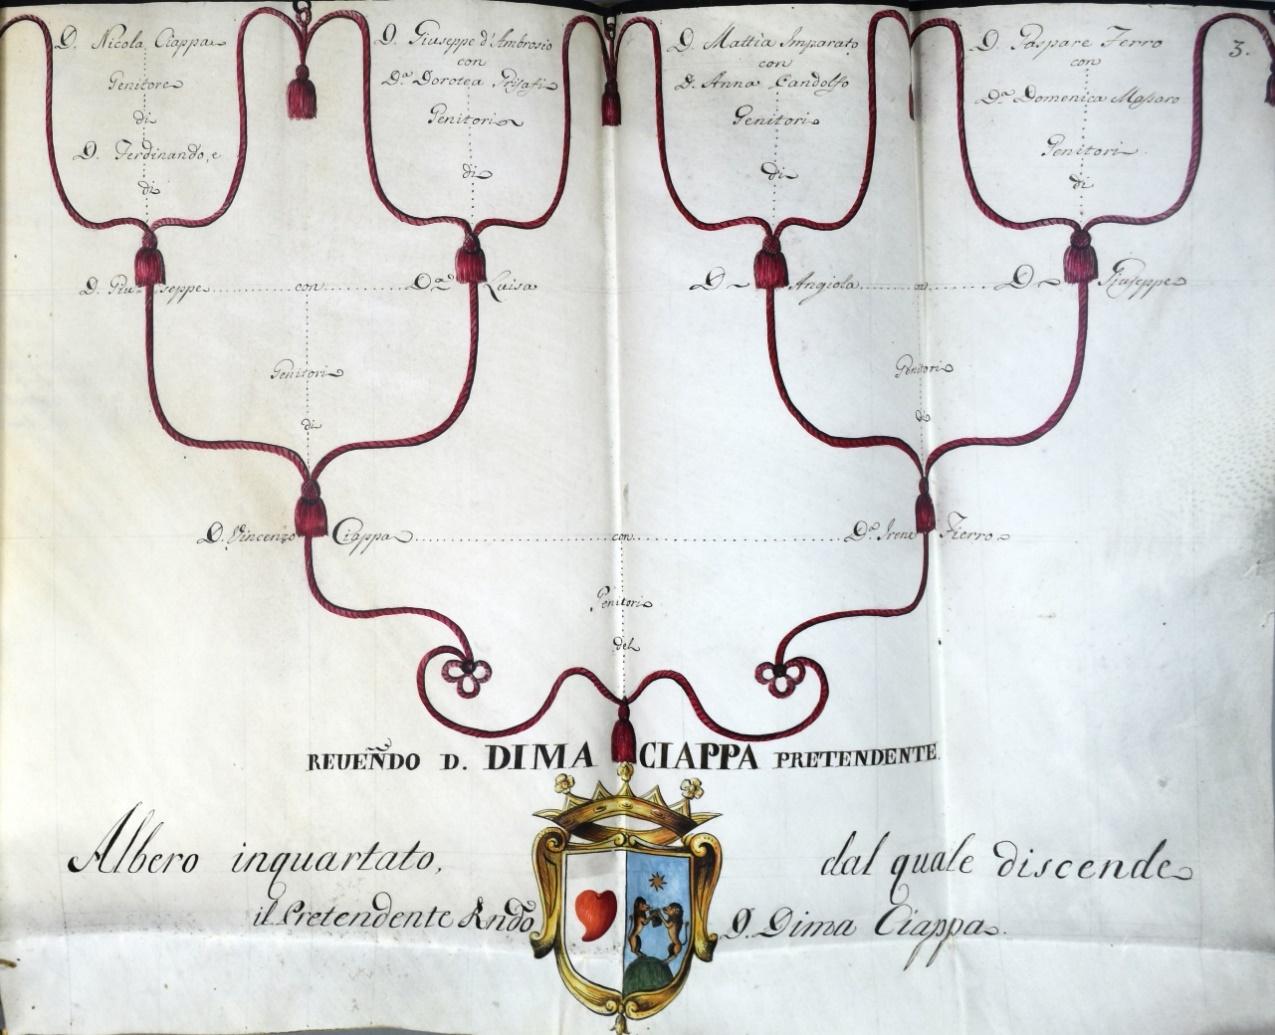 D. Nicola Ciappa
Genitore
di
D. Ferdinando, e
di
D. Giuseppe d'Ambrosio
con
D.ª Dorotea
Genitori
di
D. Mattia Imparato
con
D. Anna Candolfo
Genitori
di
D. Gaspare Ferro
con
D.ª Domenica Massaro
Genitori
di
3.
D. Giuseppe con D.ª Luisa
D. Angiola con D. Giuseppe
Genitori
di
Genitori
di
D. Vincenzo Ciappa con D.ª Irene Fierro
Genitori
del
REUEÑDO D. DIMA CIAPPA PRETENDENTE.
Albero inquartato, dal quale discende
il Pretendente Rndo D. Dima Ciappa.